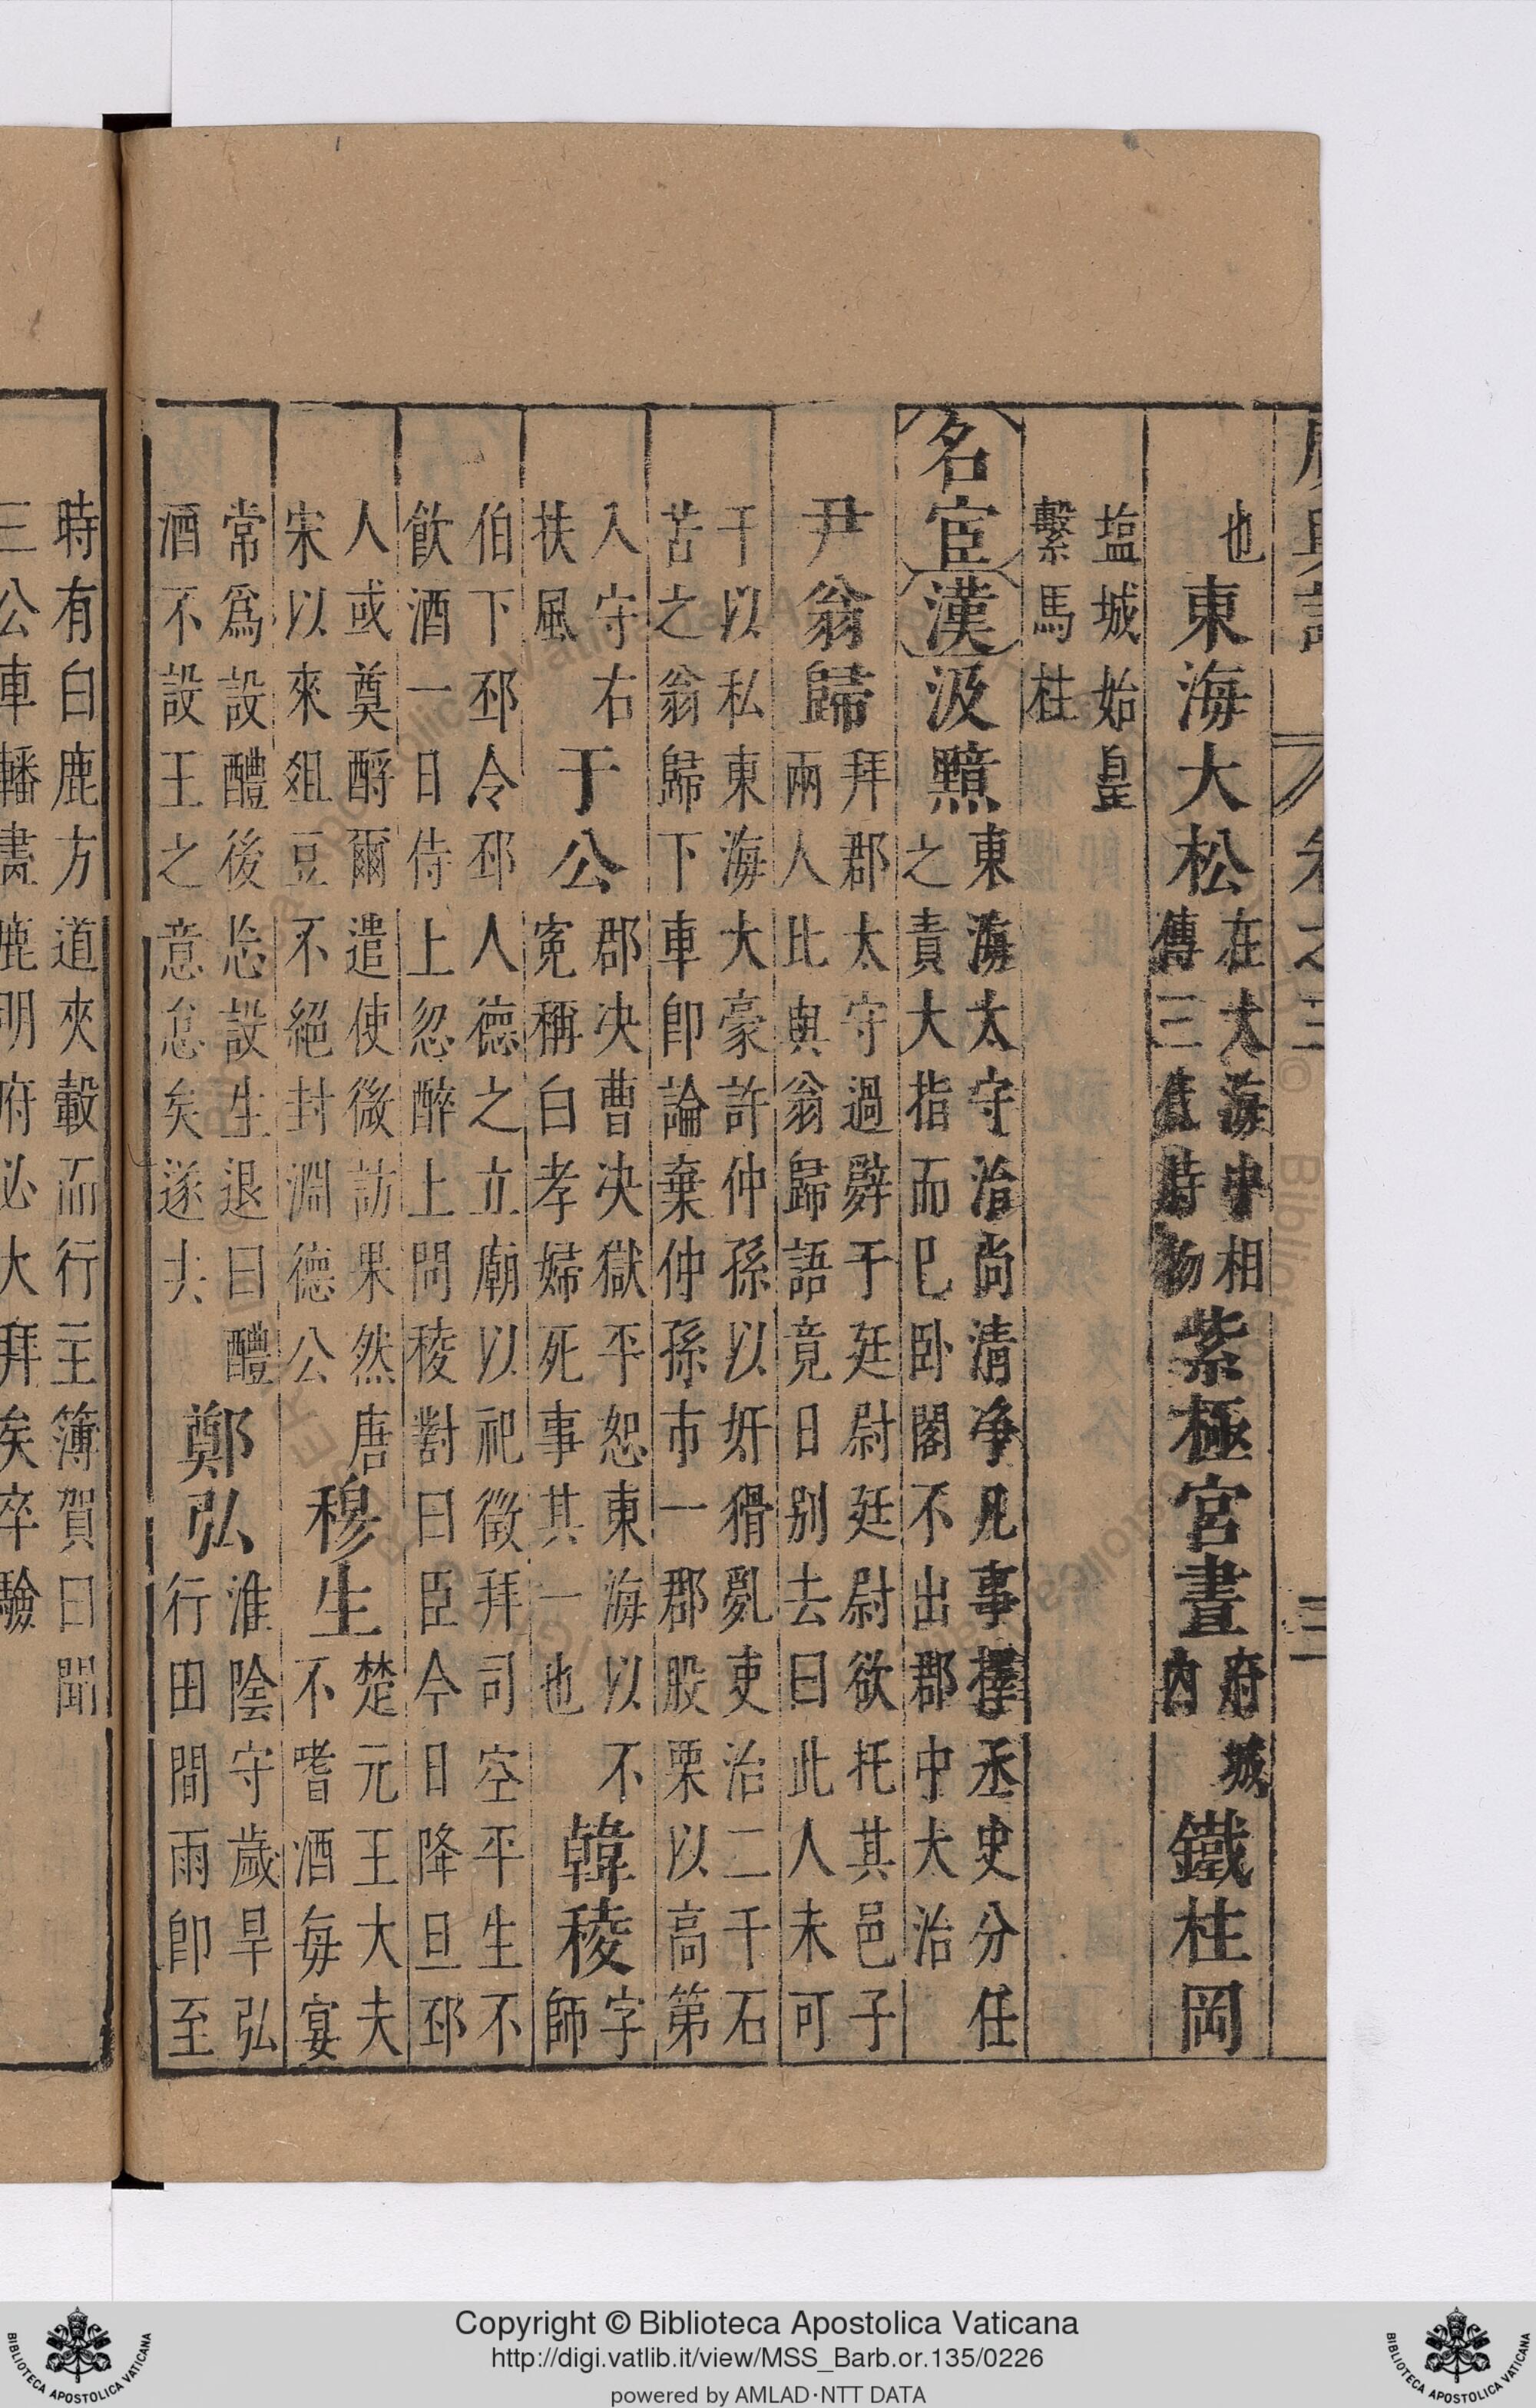 也
東海大松
在大海中相
傳三代時物
紫極宮晝
府城
內
鐵柱岡
塩城始皇
繫馬柱
名宦
漢
汲黯
東海太守治尚清净凡事擇丞史分任
之責大指而已卧閣不出郡中大治
尹翁歸
拜郡太守過辭于廷尉廷尉欲托其邑子
兩人比與翁歸語竟日别去曰此人未可
干以私東海大豪許仲孫以奸猾亂吏治二千石
苦之翁歸下車卽論棄仲孫市一郡股栗以高第
入守右
扶風
于公
郡决曹决獄平恕東海以不
寃稱白孝婦死事其一也
韓稜
字
師
伯下邳令邳人德之立廟以祀徵拜司空平生不
飲酒一日侍上忽醉上問稜對曰臣今日降旦邳
人或奠酹爾遣使微訪果然唐
宋以來俎豆不絕封淵德公
穆生
楚元王大夫
不嗜酒每宴
常爲設醴後忘設生退曰醴
酒不設王之意怠矣遂去
鄭弘
淮陰守歲旱弘
行田間雨卽至
時有白鹿方道夾轂而行主簿賀曰聞
三公車轓畫鹿明府必大拜矣卒驗
Copyright © Biblioteca Apostolica Vaticana
http://digi.vatlib.it/view/MSS_Barb.or.135/0226
powered by AMLAD·NTT DATA
BIBLIOTECA APOSTOLICA VATICANA
BIBLIOTECA APOSTOLICA VATICANA